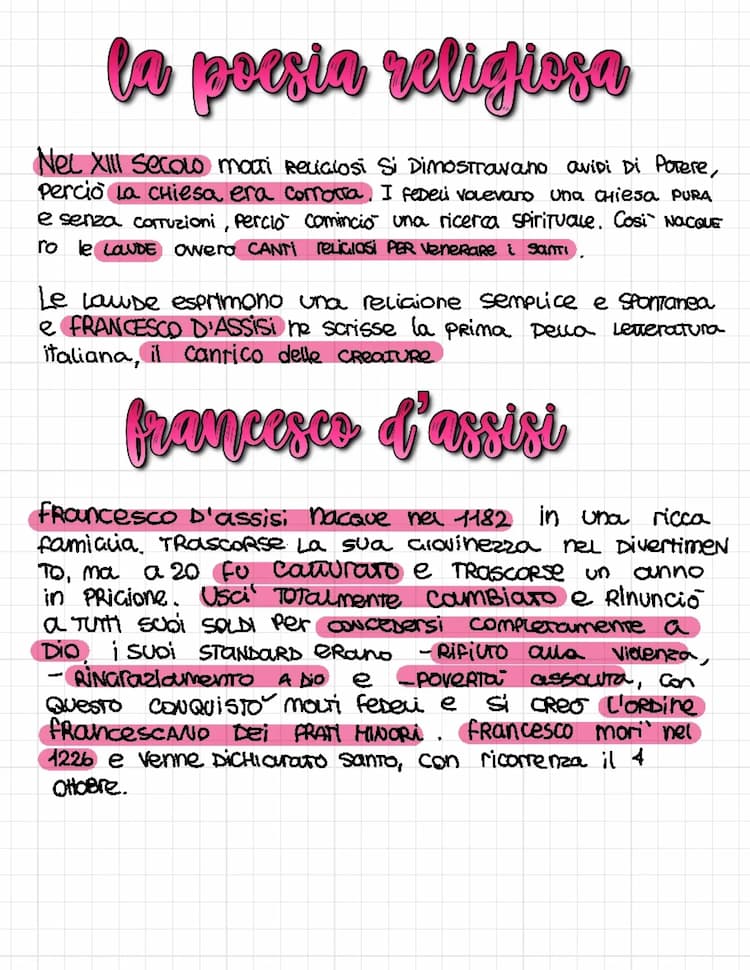 la poesia religiosa
Nel XIII secolo molti religiosi si dimostravano avidi di potere,
perciò la chiesa era corrotta. I fedeli volevano una chiesa pura
e senza corruzioni, perciò cominciò una ricerca spirituale. Così nacque
ro le laude ovvero canti religiosi per venerare i santi.
Le laude esprimono una religione semplice e spontanea
e FRANCESCO D'ASSISI ne scrisse la prima della letteratura
italiana, il cantico delle creature
francesco d'assisi
Francesco D'assisi nacque nel 1182 in una ricca
famiglia. Trascorse la sua giovinezza nel divertimen
to, ma a 20 fu catturato e trascorse un anno
in prigione. Uscì totalmente cambiato e rinunciò
a tutti suoi soldi per concedersi completamente a
Dio. i suoi standard erano - rifiuto alla violenza,
- ringraziamento a Dio e - povertà assoluta, con
questo conquistò molti fedeli e si creò l'ordine
francescano dei frati minori. Francesco morì nel
1226 e venne dichiarato santo, con ricorrenza il 4
ottobre.